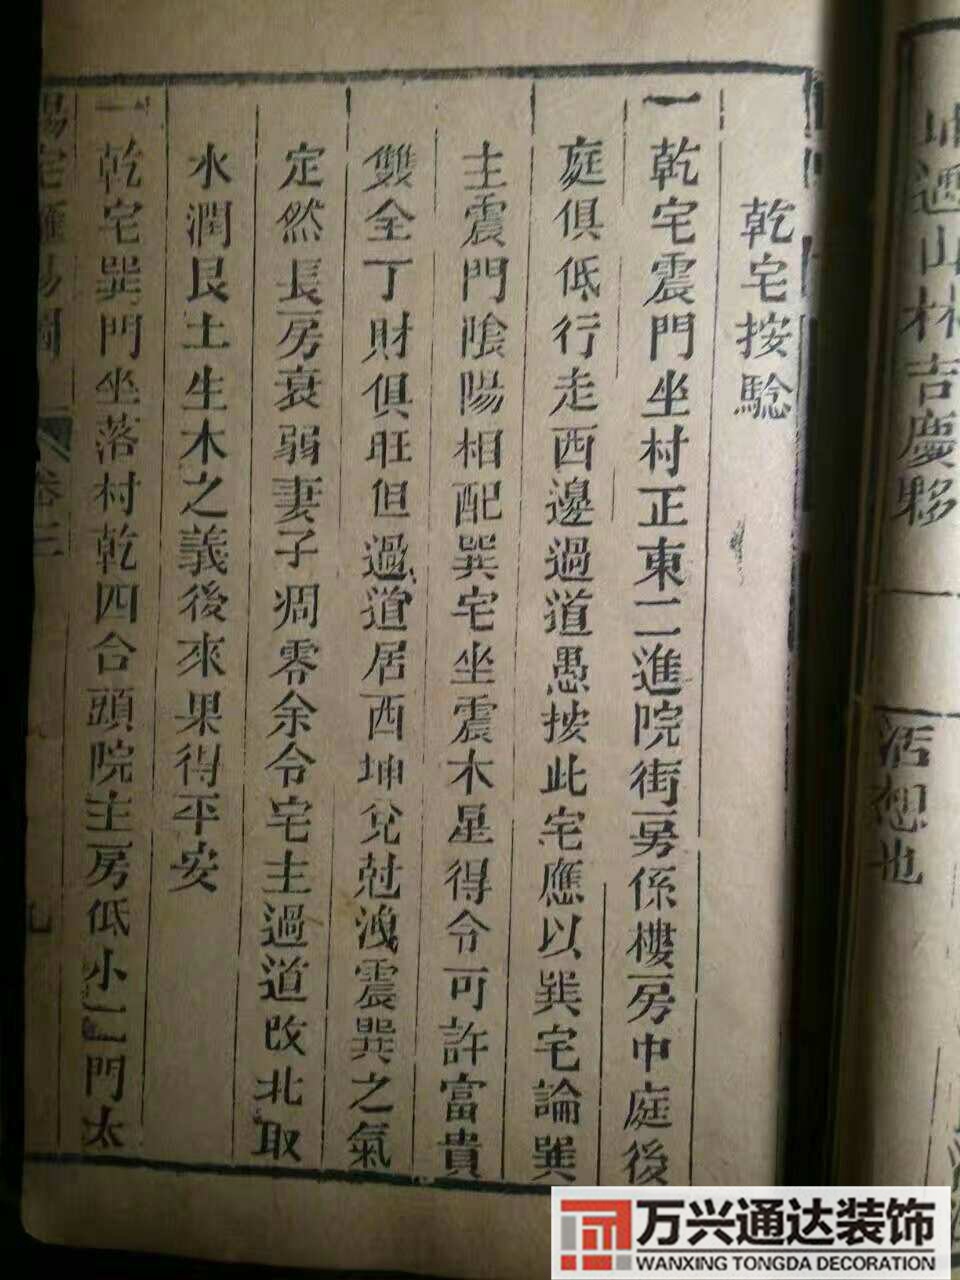 坤遇山林吉慶夥
活想也
乾宅按驗
一乾宅震門坐村正東二進院街房係樓房中庭後
庭俱低行走西邊過道愚按此宅應以巽宅論巽
主震門陰陽相配巽宅坐震木星得令可許富貴
雙全丁財俱旺但過道居西坤兌尅洩震巽之氣
定然長房衰弱妻子凋零余令宅主過道改北取
水潤艮土生木之義後來果得平安
一乾宅巽門坐落村乾四合頭院主房低小二門太
卷三
九
万兴通达装饰
WANXING TONGDA DECORATION